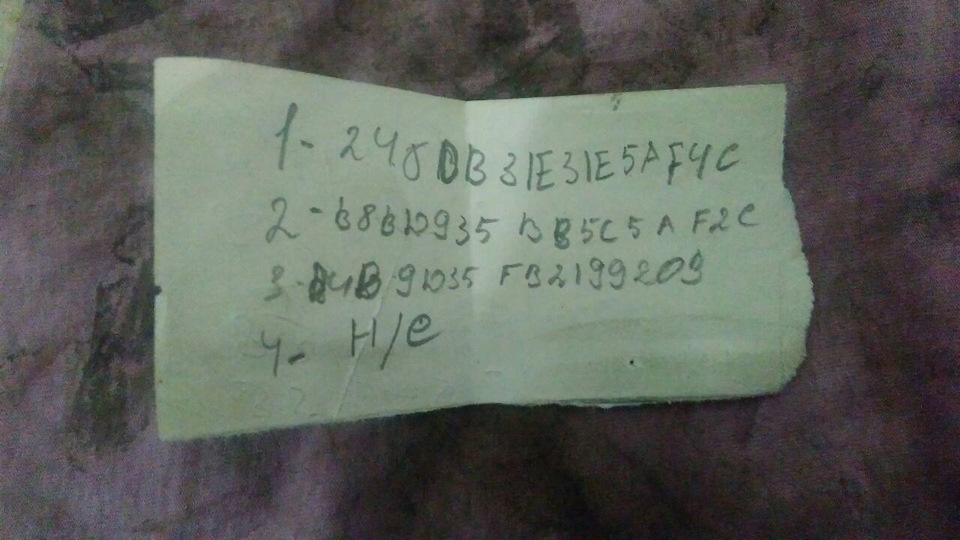 1- 248DB31E31E5AF4C
2- B8BD935BB5C5AF2C
3- D4B9D35FB2199209
4- H/C